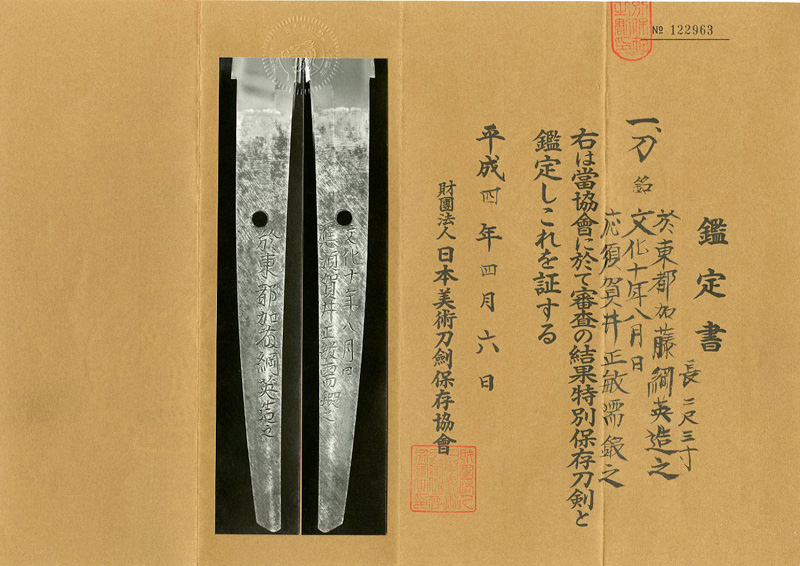 № 122963
鑑定書
一、刀 銘
於東都加藤綱英造之
文化十年八月日
応須賀井正敏需鍛之
長二尺三寸
右は當協會に於て審査の結果特別保存刀剣と
鑑定しこれを証する
平成四年四月六日
財團法人 日本美術刀劍保存協會
文化十年八月日
應須賀井正敏需鍛之
於東都加藤綱英造之